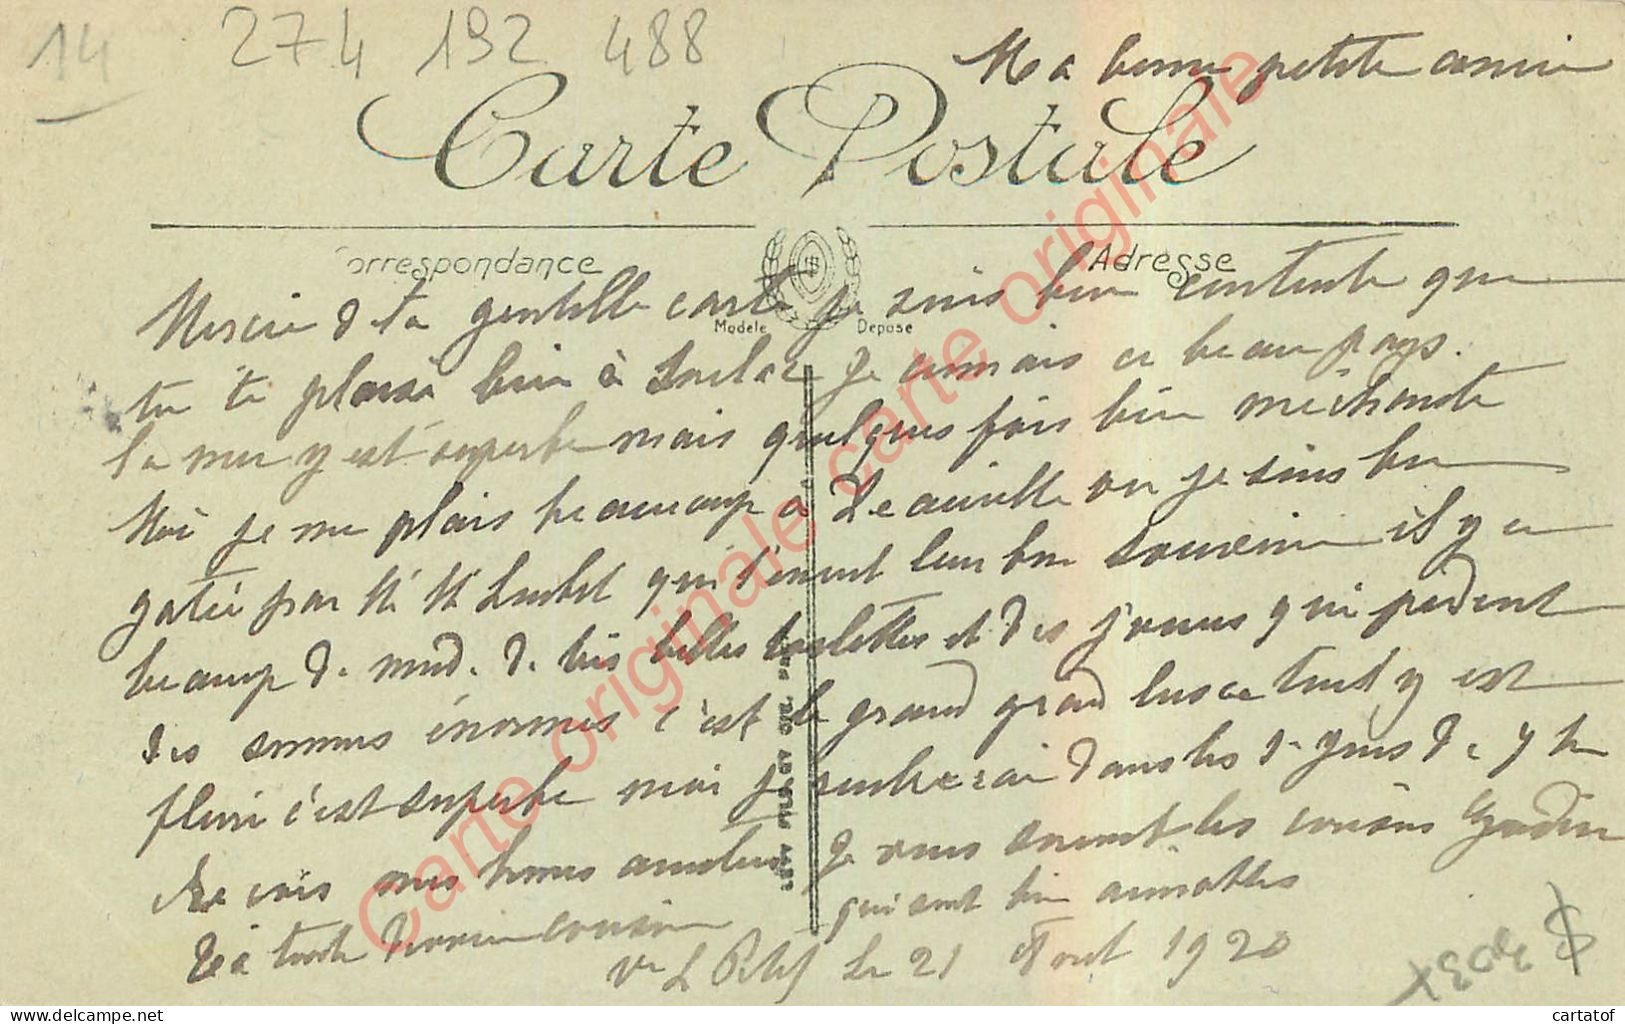 14 274 192 488
Ma bonne petite amie
Carte Postale
Correspondance
Adresse
Modèle Déposé
Merci de ta gentille carte je suis bien contente que
tu te plaise bien à Soulac je connais ce beau pays.
la mer y est superbe mais quelques fois bien méchante
Moi je me plais beaucoup a Deauville ou je suis bien
gatée par Mr Mme qui t'envoient leur bon souvenir il y a
beaucoup de monde de très belles toilettes et des joueurs qui perdent
des sommes énormes c'est le grand grand luxe tout y est
fleuri c'est superbe moi je rentrerai dans les 1er jours de 7bre
Reçois mes bonnes amitiés je vois souvent les cousins
qui sont bien aimables
Ta toute dévouée cousine
Vve L le 21 Aout 1920
Carte originale carte originale
cartatof